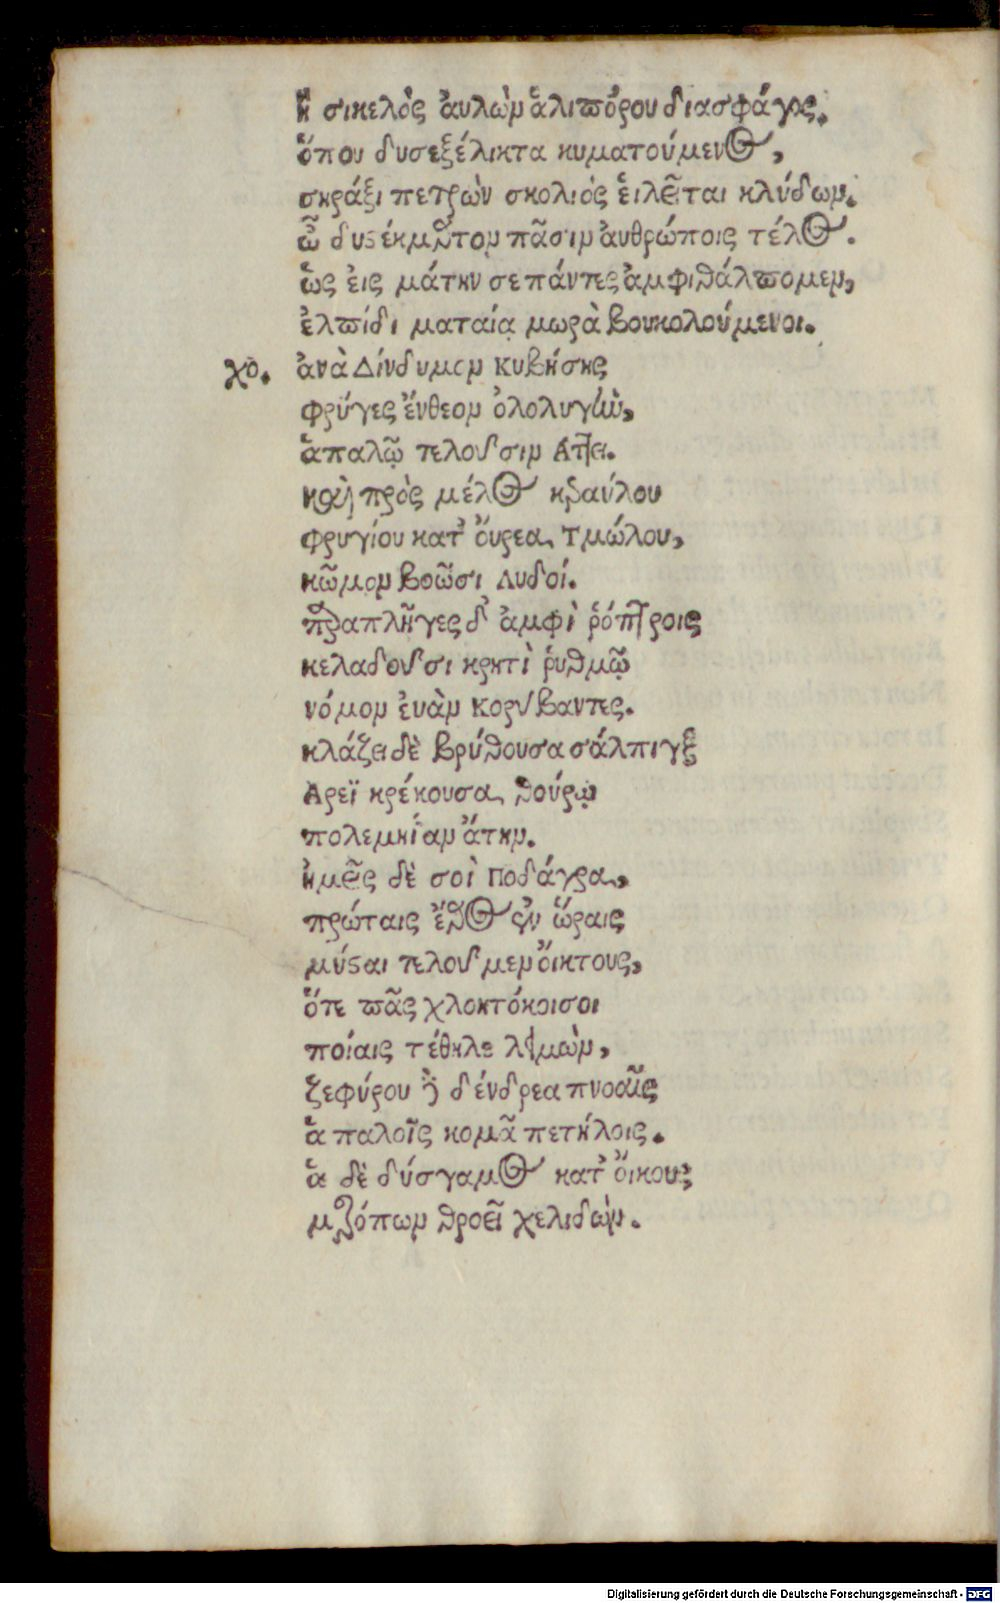 ἢ σικελὸς ἀυλὼν ἁλιπόρου διασφάγας.
ὅπου δυσεξέλικτα κυματούμενος,
σκράξι πετρὼν σκολιὸς εἱλεῖται κλύδων.
ὦ δυστέκμαρτον πᾶσιν ἀνθρώποις τέλος.
ὥς ἐις μάτην σε πάντες ἀμφιθάλπομεν,
ἐλπίδι ματαίᾳ μωρὰ βουκολούμενοι.
χὀ. ἀνὰ Δίνδυμον κυβήσης
φρύγες ἔνθεον ὀλολυγὼ,
ἅπαλῷ τελοῦσιν Αττει.
καὶ πρὸς μέλος κεραύλου
φρυγίου κατ᾽ ὄυρεα Τμώλου,
κῶμον βοῶσι Λυδοί.
παραπλῆγες δ᾽ ἀμφὶ ῥόπτροις
κελαδοῦσι κρητὶ ῥυθμῷ
νόμον ἐυὰν κορύβαντες.
κλάζει δὲ βρύθουσα σάλπιγξ
Αρεϊ κρέκουσα θούρῳ
πολεμηίαν ἄτην.
ἡμεῖς δὲ σοὶ ποδάγρα,
πρώταις ἔαρος ἐν ὥραις
μύσται τελοῦμεν ὄικτους,
ὅτε πᾶς χλοητόκοισοι
ποίαις τέθηλε λειμὼν,
ζεφύρου δὲ δένδρεα πνοαῖς
ἅπαλοῖς κομᾶ πετήλοις.
ἅ δὲ δύσγαμος κατ᾽ ὄικους
μερόπων θροεῖ χελιδὼν.
Digitalisierung gefördert durch die Deutsche Forschungsgemeinschaft - DFG